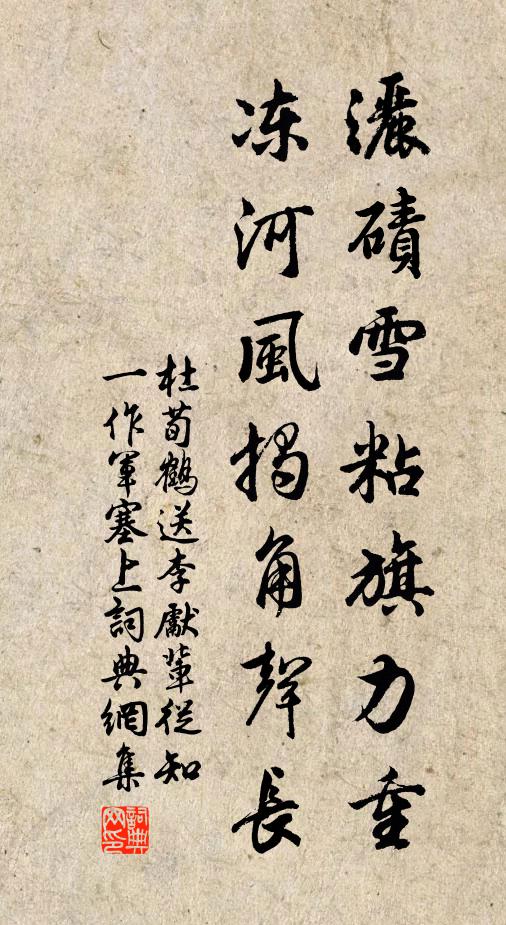 灑磧雪粘旗力重
凍河風揭角聲長
杜荀鶴送李獻輩從知
一作軍塞上詞典網集
詞典网印